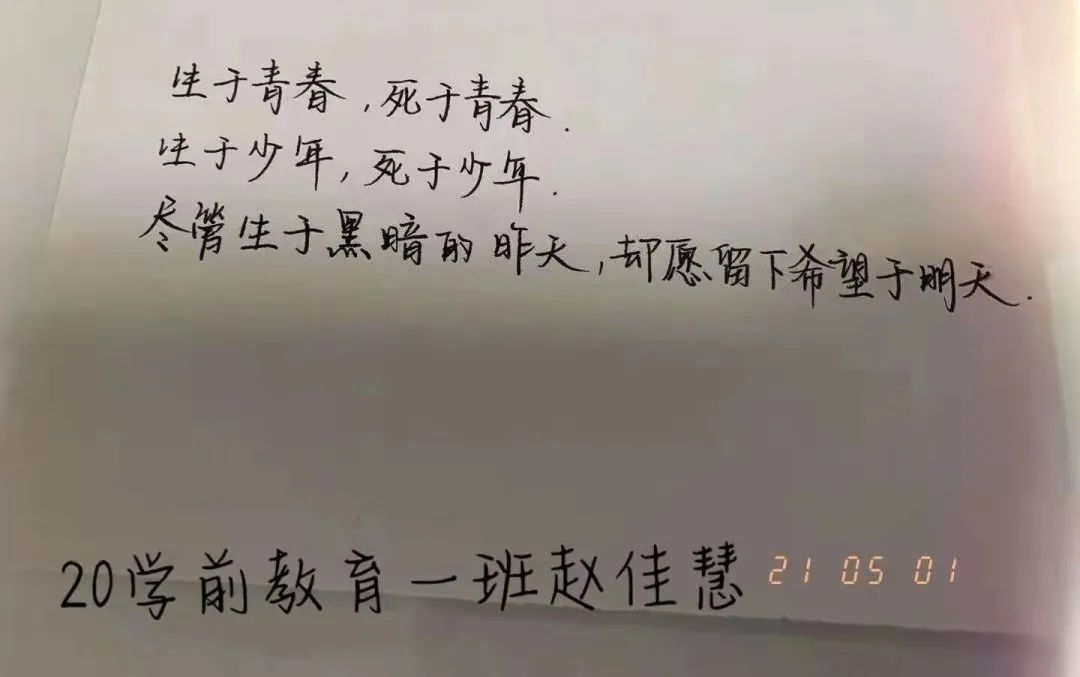 生于青春,死于青春.
生于少年,死于少年.
尽管生于黑暗的昨天,却愿留下希望于明天.
20学前教育一班赵佳慧 21 05 01